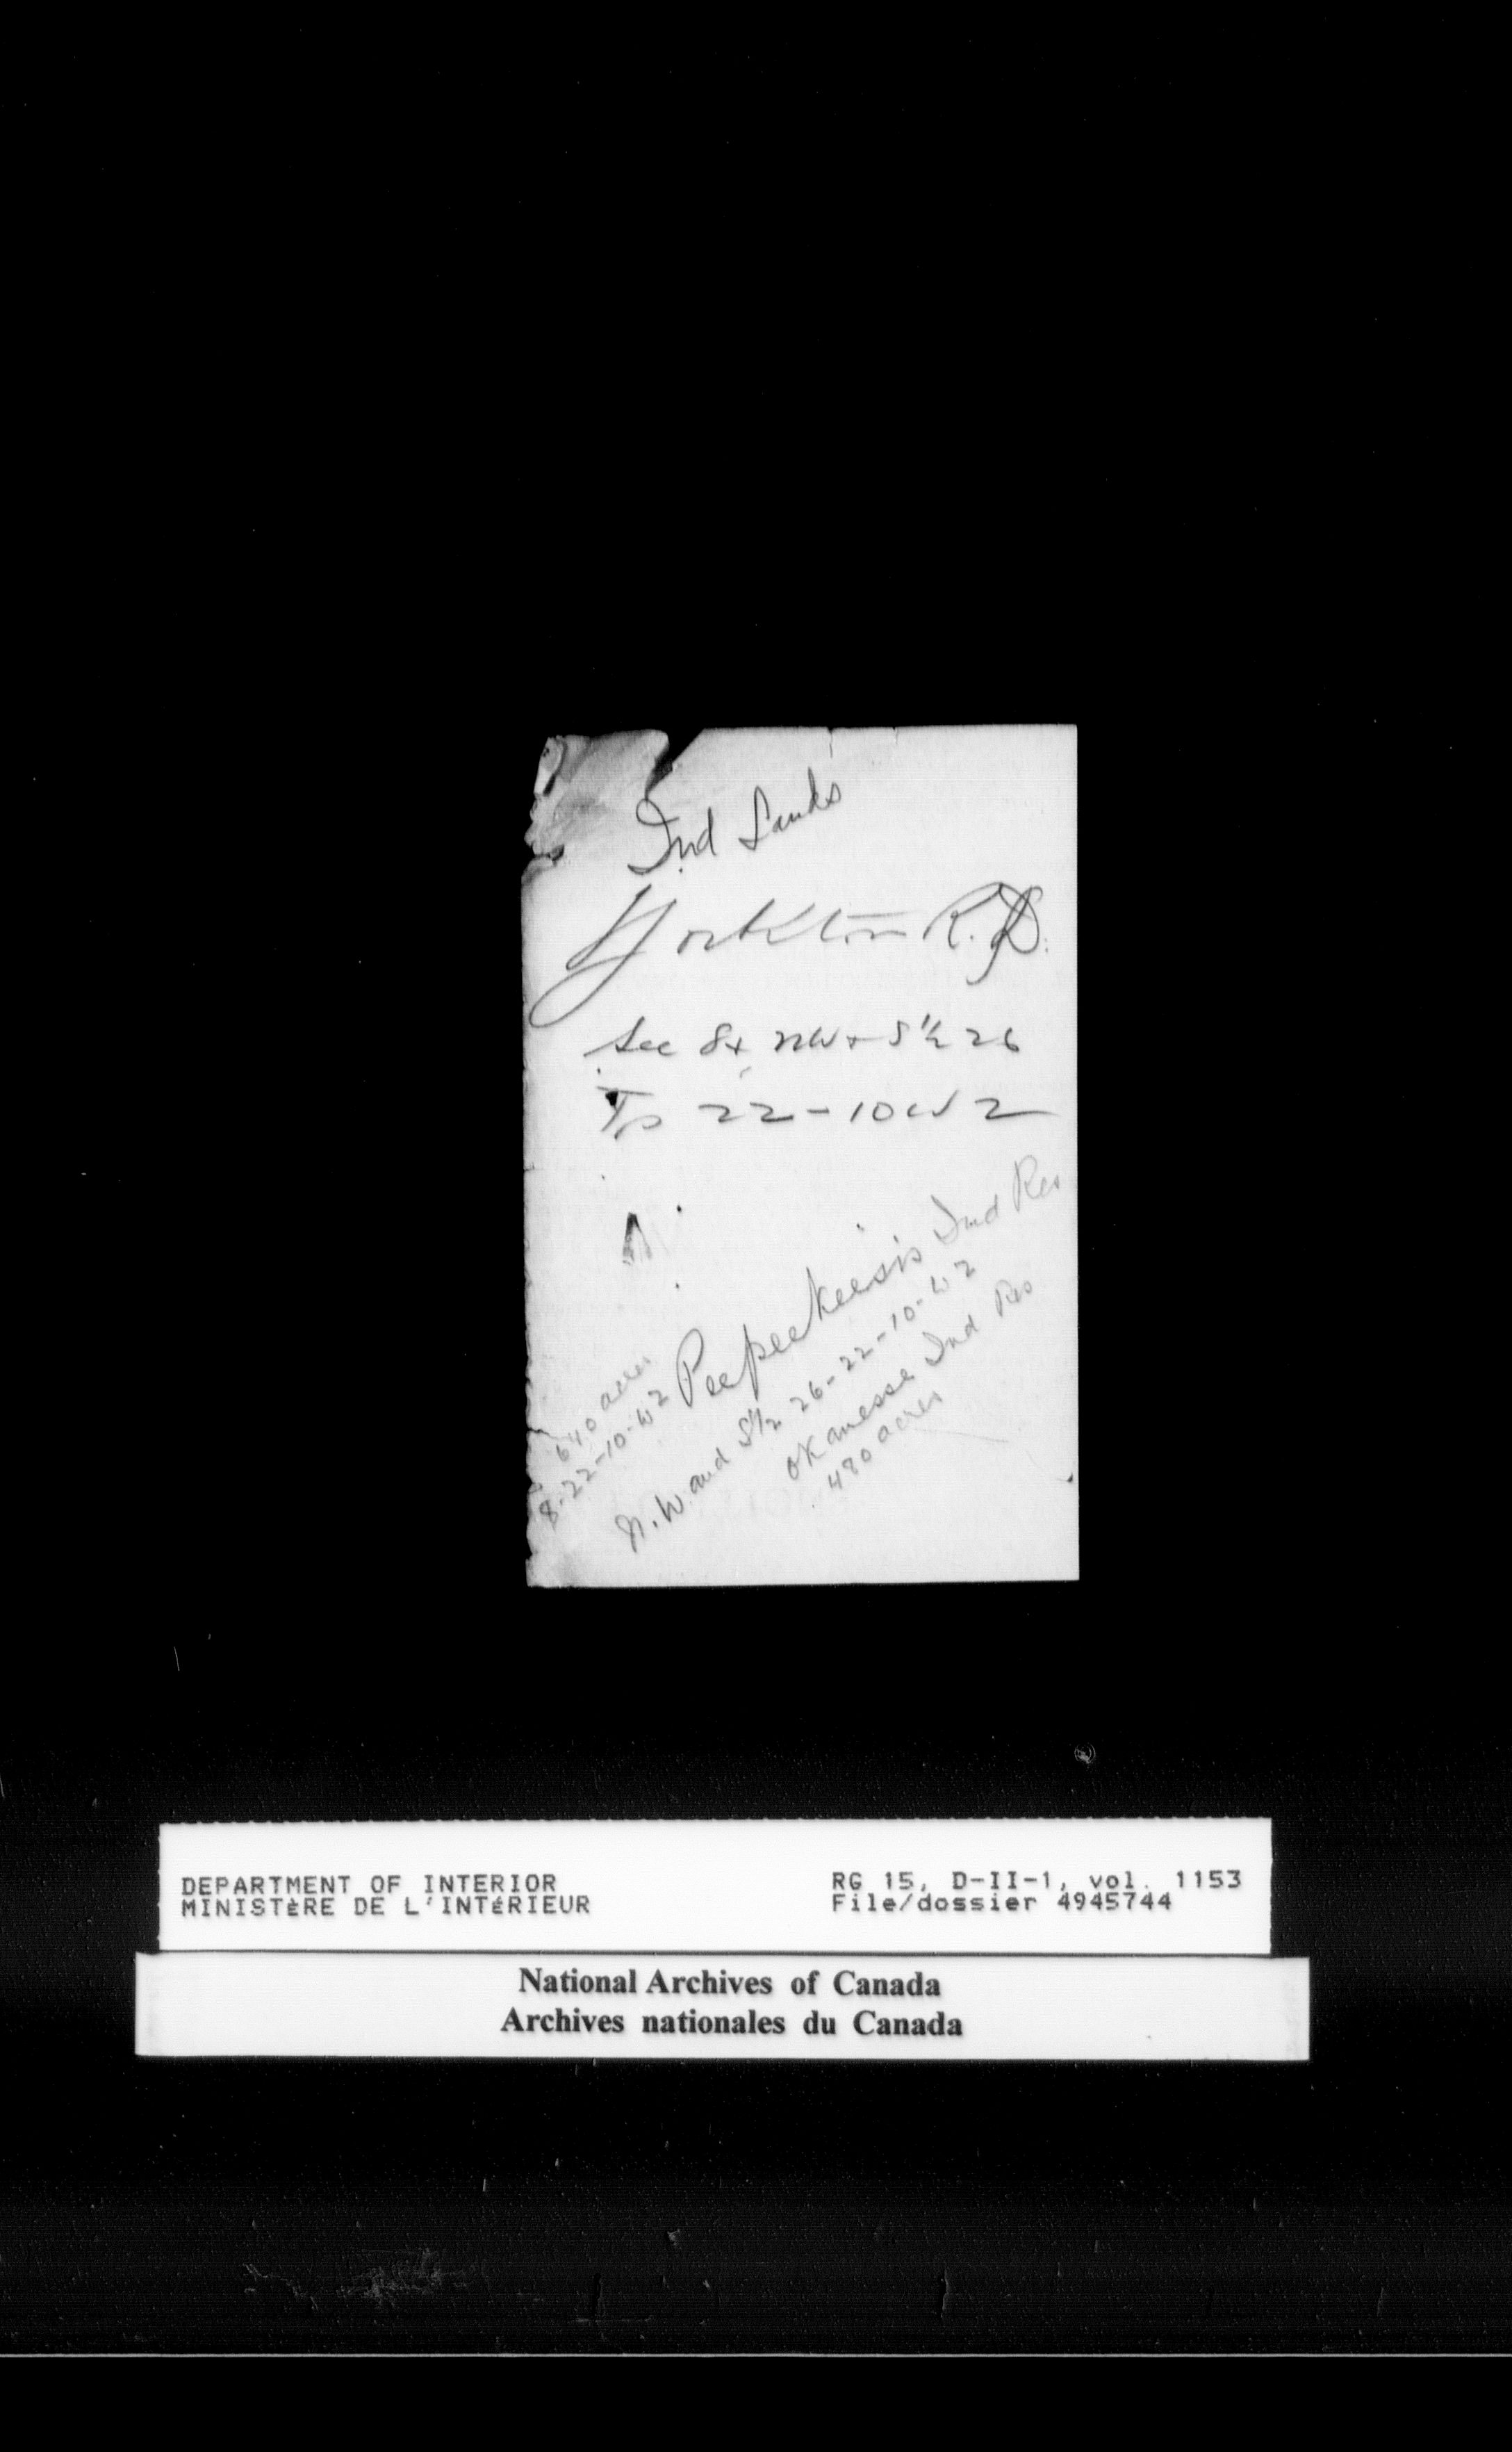 Ind Lands
Yorkton R.D.
Sec 8 + NW + S½ 26
Tp 22-10 W 2
640 acres
8-22-10-W2 Peepeekeesis Ind Res
N.W. and S½ 26-22-10-W2
Okanesse Ind Res
480 acres
DEPARTMENT OF INTERIOR
MINISTÈRE DE L'INTÉRIEUR
RG 15, D-II-1, vol. 1153
File/dossier 4945744
National Archives of Canada
Archives nationales du Canada